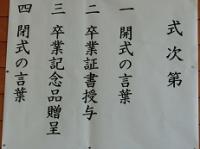 式次第
一 開式の言葉
二 卒業証書授与
三 卒業記念品贈呈
四 閉式の言葉